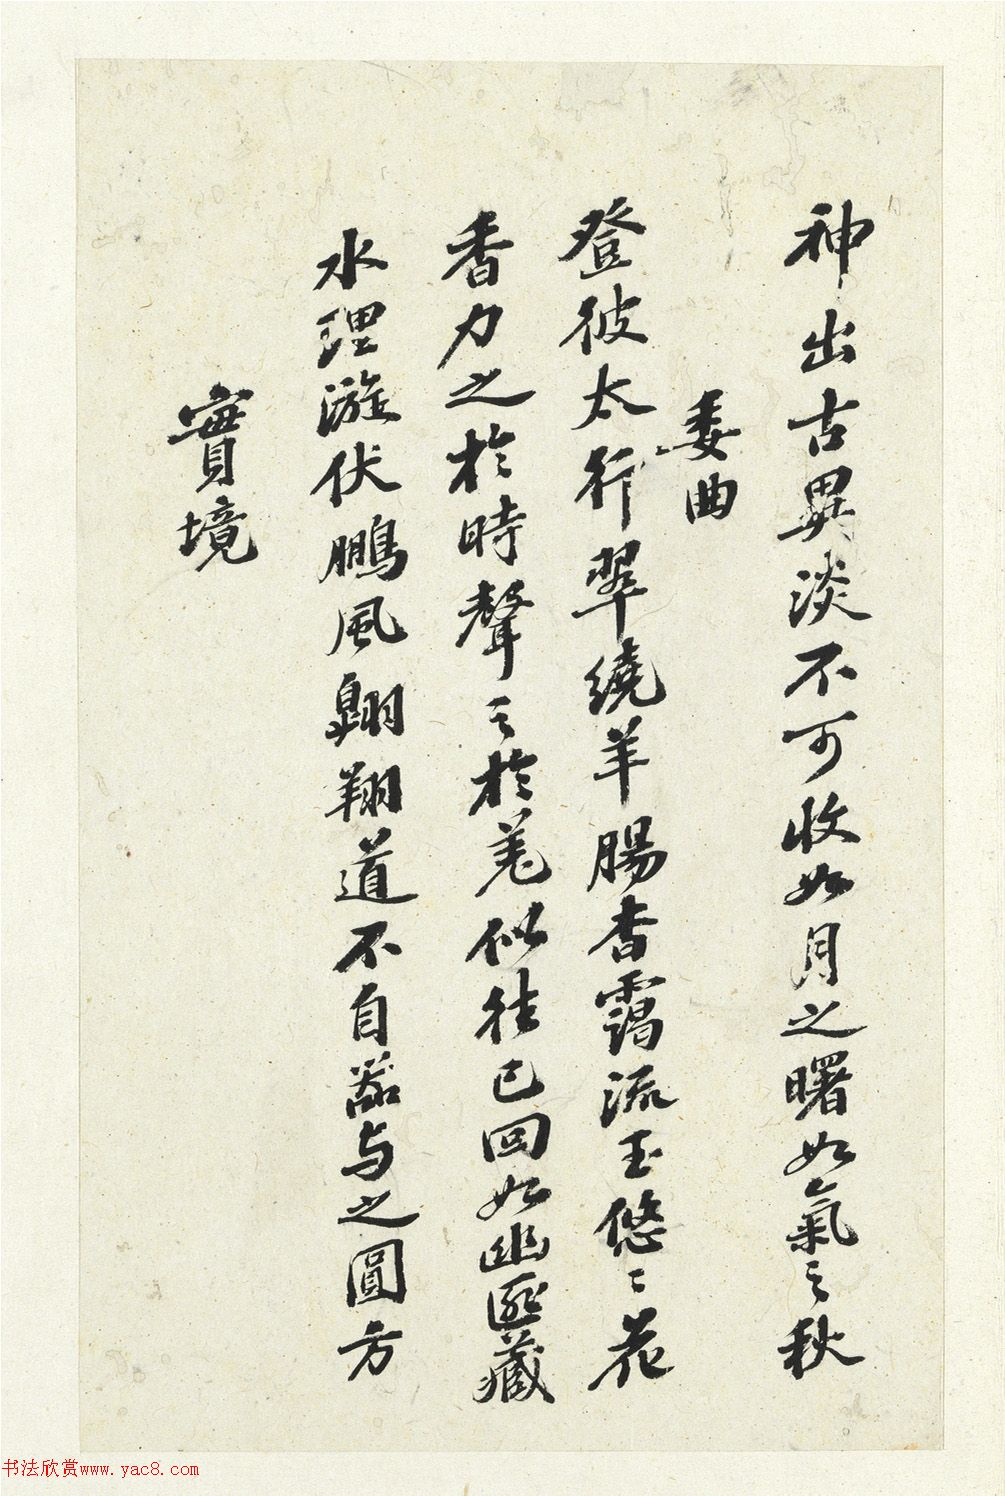 神出古異淡不可收如月之曙如氣之秋
委曲
登彼太行翠繞羊腸杳靄流玉悠〻花
香力之於時聲之於羌似往已回如幽匪藏
水理漩伏鵬風翱翔道不自器与之圓方
實境
书法欣赏www.yac8.com